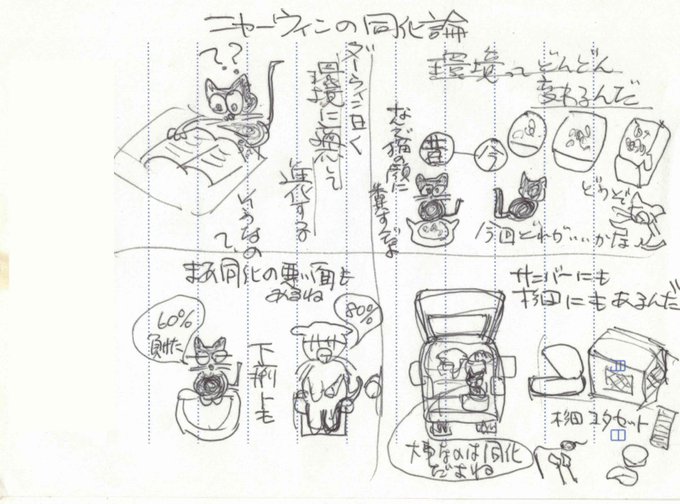 ニャーウィンの同化論
ダーウィン曰く
環境に適応して
進化する
というなの
?
環境ってどんどん
変わるんだ
昔
今
なんで猫の顔に
どうぞ
今回どれがいいかな
まあ同化の悪い面も
あるね
60%
80%
下剤上も
サニバーにも
杉田にもあるんだ
杉田コタセット
大事なのは同化
だよね